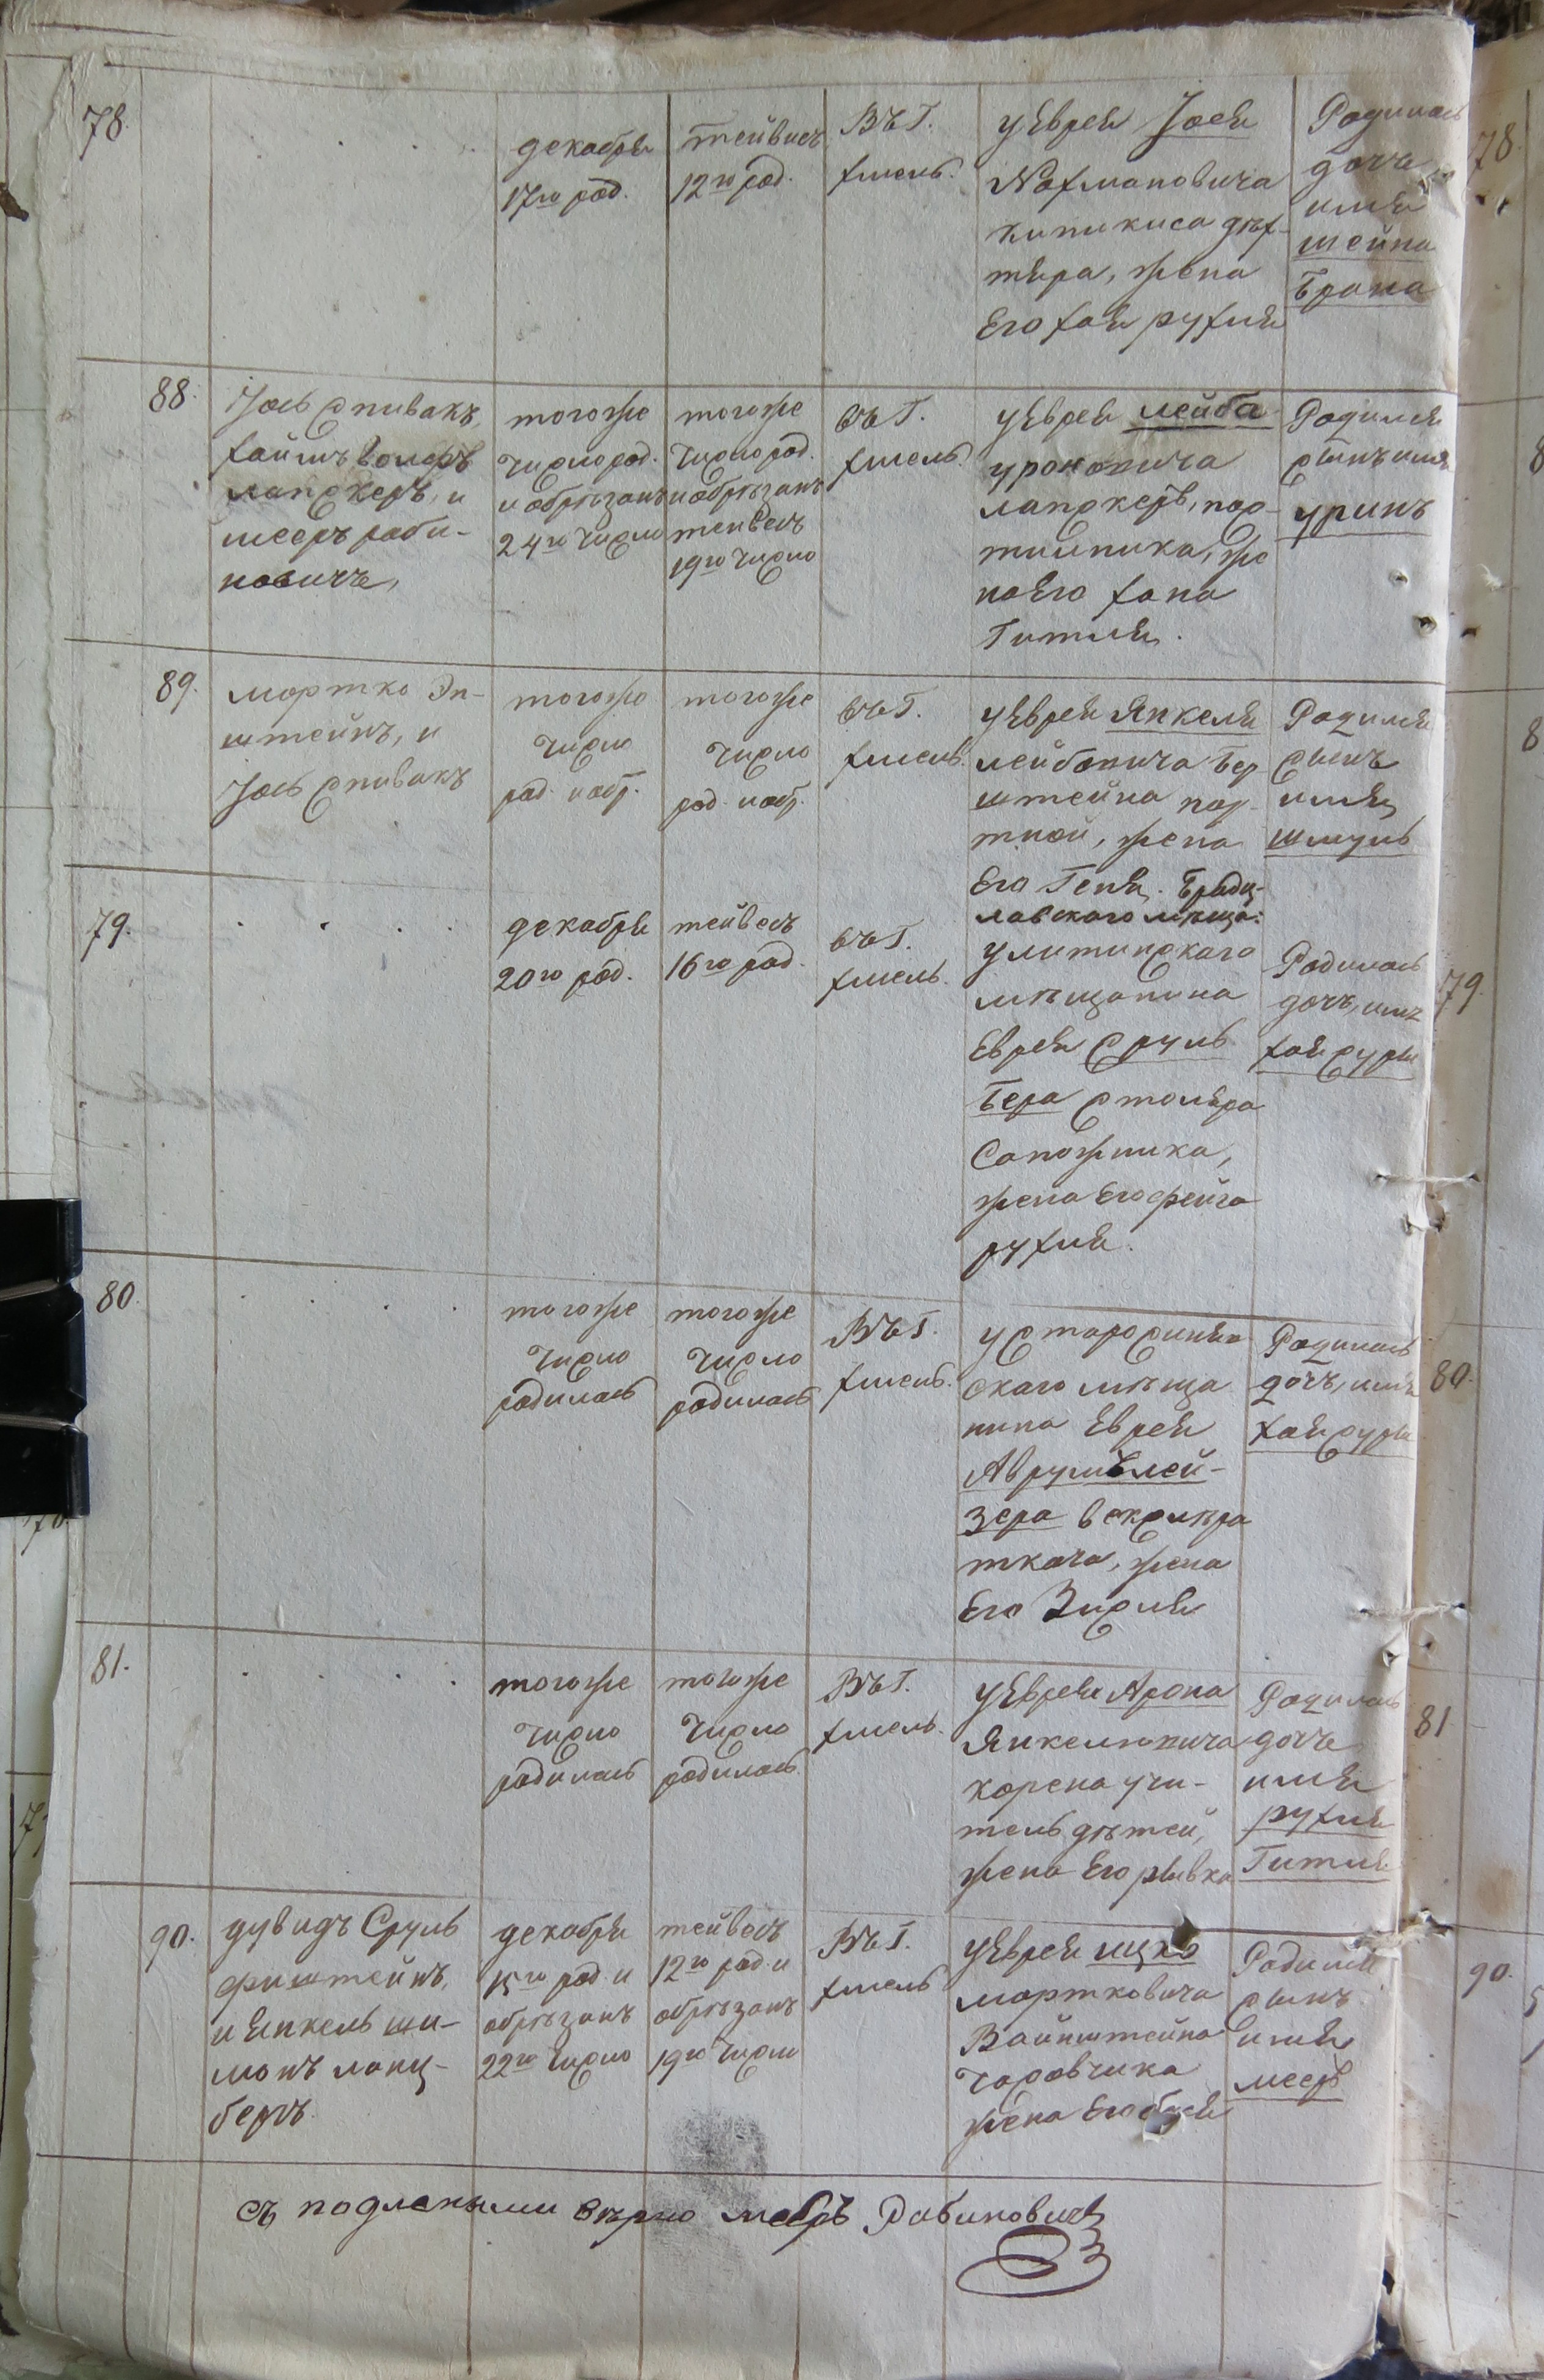 78.
декабря
17го род.
тейвесъ
12го род.
ВъГ.
хмель.
уеврея Іося
Nахмановича
кипикиса дѣх-
тяра, жена
его хая рухля
Родилась
дочь
имя
шейна
брана
88.
Іось спивакъ,
хаимъ волфъ
лапскеръ, и
мееръ раби-
новичъ,
тогоже
число род.
и обрѣзанъ
24го число
тогоже
число род.
и обрѣзанъ
тейвесъ
19го число
въГ.
хмель.
уеврея лейба
уроновича
лапскеръ, пор-
тийника, же
на его хана
Гитля.
Родился
сынъ имя
уринъ
89.
мортко Эп-
штейнъ, и
Іось спивакъ
тогоже
число
род. и обр.
тогоже
число
род. и обр.
въГ.
хмель.
уеврея янкеля
лейбовича бер
штейна пор-
тной, жена
его Геня. брацл-
лавского мѣща:
Родился
сынъ
имя
шмуль
79.
декабря
20го род.
тейвесъ
16го род.
въГ.
хмель.
улитинскаго
мѣщанина
еврея сруль
бера столяра
Сапожника,
жена его фейга
рухля.
Родилась
дочь, имя
хая сура
80.
тогоже
число
родилась
тогоже
число
родилась
ВъГ.
хмель.
у старосиня
скаго мѣща
нина еврея
Аврумъ лей-
зера векслира
ткача, жена
его Зисля
Родилась
дочь, имя
хая сура
81.
тогоже
число
родилась
тогоже
число
родилась
ВъГ.
хмель.
уеврея Арона
янкелювича
корена учи-
тель дѣтей,
жена его рывка
Родилась
дочь
имя
рухля
Гитля
90.
дувидъ Сруль
финштейнъ,
и янкель ши-
монъ ланц-
бергъ.
декабря
15го род. и
обрѣзанъ
22го число
тейвесъ
12го род. и
обрѣзанъ
19го число
ВъГ.
хмель
уеврея ицко
мортковича
Вайнштейна
часовчика
жена его бася
Родился
сынъ
имя
меер
съ подлеными вѣрно мееръ Рабиновичъ
78.
79.
80.
81
90.